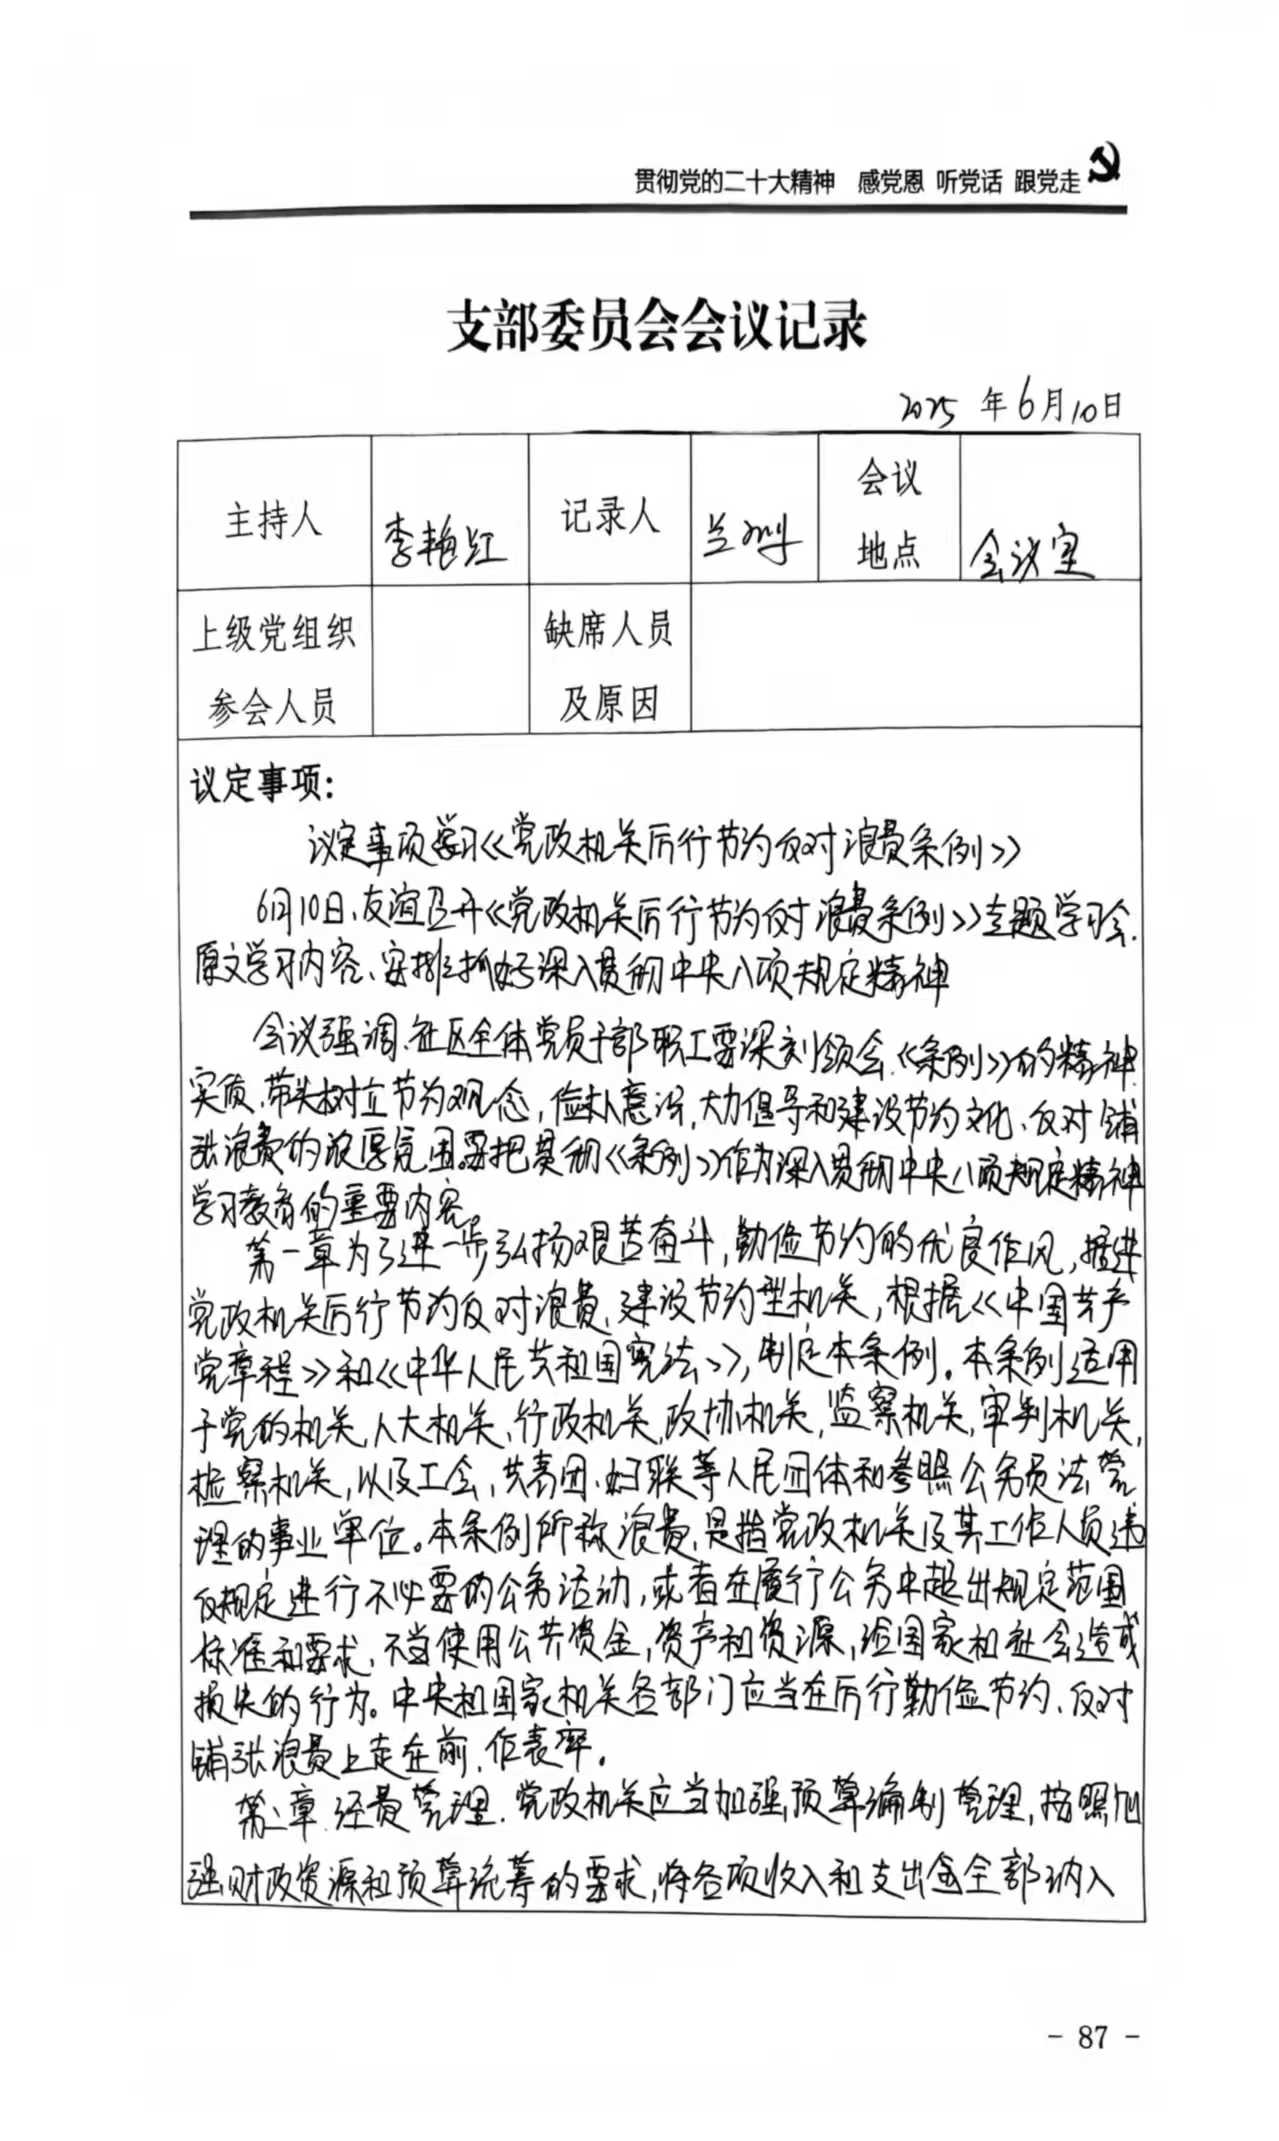 贯彻党的二十大精神 感党恩 听党话 跟党走
支部委员会会议记录
2025 年 6月10日
主持人 李艳红 记录人 会议地点 会议室
上级党组织参会人员 缺席人员及原因
议定事项：
议定事项学习《党政机关厉行节约反对浪费条例》
6月10日、友谊召开《党政机关厉行节约反对浪费条例》主题学习会.
原文学习内容、安排抓好深入贯彻中央八项规定精神
会议强调、社区全体党员干部职工要深刻领会《条例》的精神
实质、带头树立节约观念，俭朴意识，大力倡导和建设节约文化、反对铺
张浪费的浓厚氛围。要把贯彻《条例》作为深入贯彻中央八项规定精神
学习教育的重要内容。
第一章为了进一步弘扬艰苦奋斗，勤俭节约的优良作风，推进
党政机关厉行节约反对浪费、建设节约型机关，根据《中国共产
党章程》和《中华人民共和国宪法》，制定本条例。本条例适用
于党的机关、人大机关、行政机关，政协机关，监察机关，审判机关，
检察机关，以及工会，共青团、妇联等人民团体和参照公务员法管
理的事业单位。本条例所称浪费，是指党政机关及其工作人员违
反规定进行不必要的公务活动，或者在履行公务中超出规定范围
标准和要求，不当使用公共资金，资产和资源，给国家和社会造成
损失的行为。中央和国家机关各部门应当在厉行勤俭节约、反对
铺张浪费上走在前，作表率。
第二章 经费管理. 党政机关应当加强预算编制管理，按照加
强财政资源和预算统筹的要求，将各项收入和支出全部纳入
- 87 -